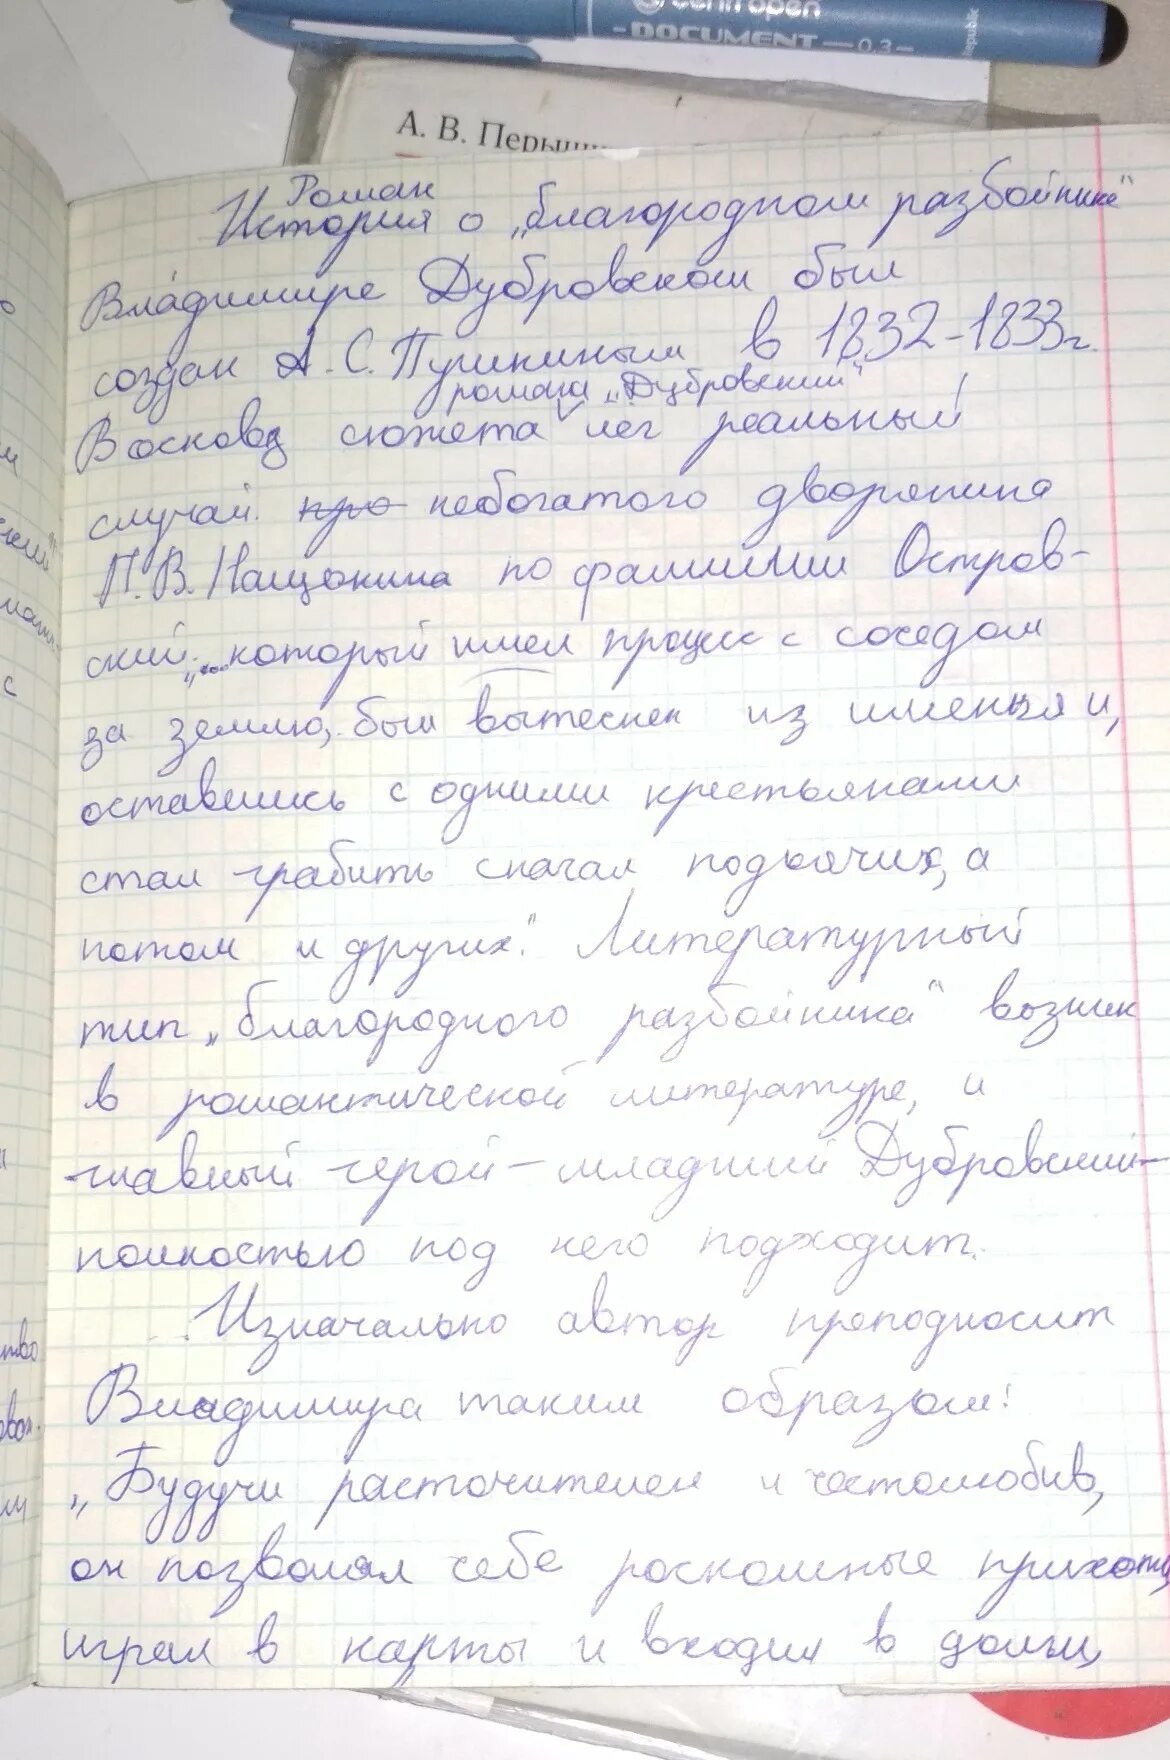 centropen
-DOCUMENT-0.3-
republic
А. В. Перышк
Роман
История о „благородном разбойнике"
Владимире Дубровском был
создан А. С. Пушкиным в 1832-1833г.
романа „Дубровский"
В основа сюжета лег реальный
случай про небогатого дворянина
П. В. Нащокина по фамилии Остров-
ский: „...который имел процес с соседом
за землю, был вытеснен из именья и,
оставшись с одними крестьянами
стал грабить сначал подъячих, а
потом и других." Литературный
тип „благородного разбойника" возник
в романтической литературе, и
главный герой – младший Дубровский –
полностью под него подходит.
Изначально автор преподносит
Владимира таким образом:
„Будучи расточителен и честолюбив,
он позволял себе роскошные прихоти,
играл в карты и входил в долги,